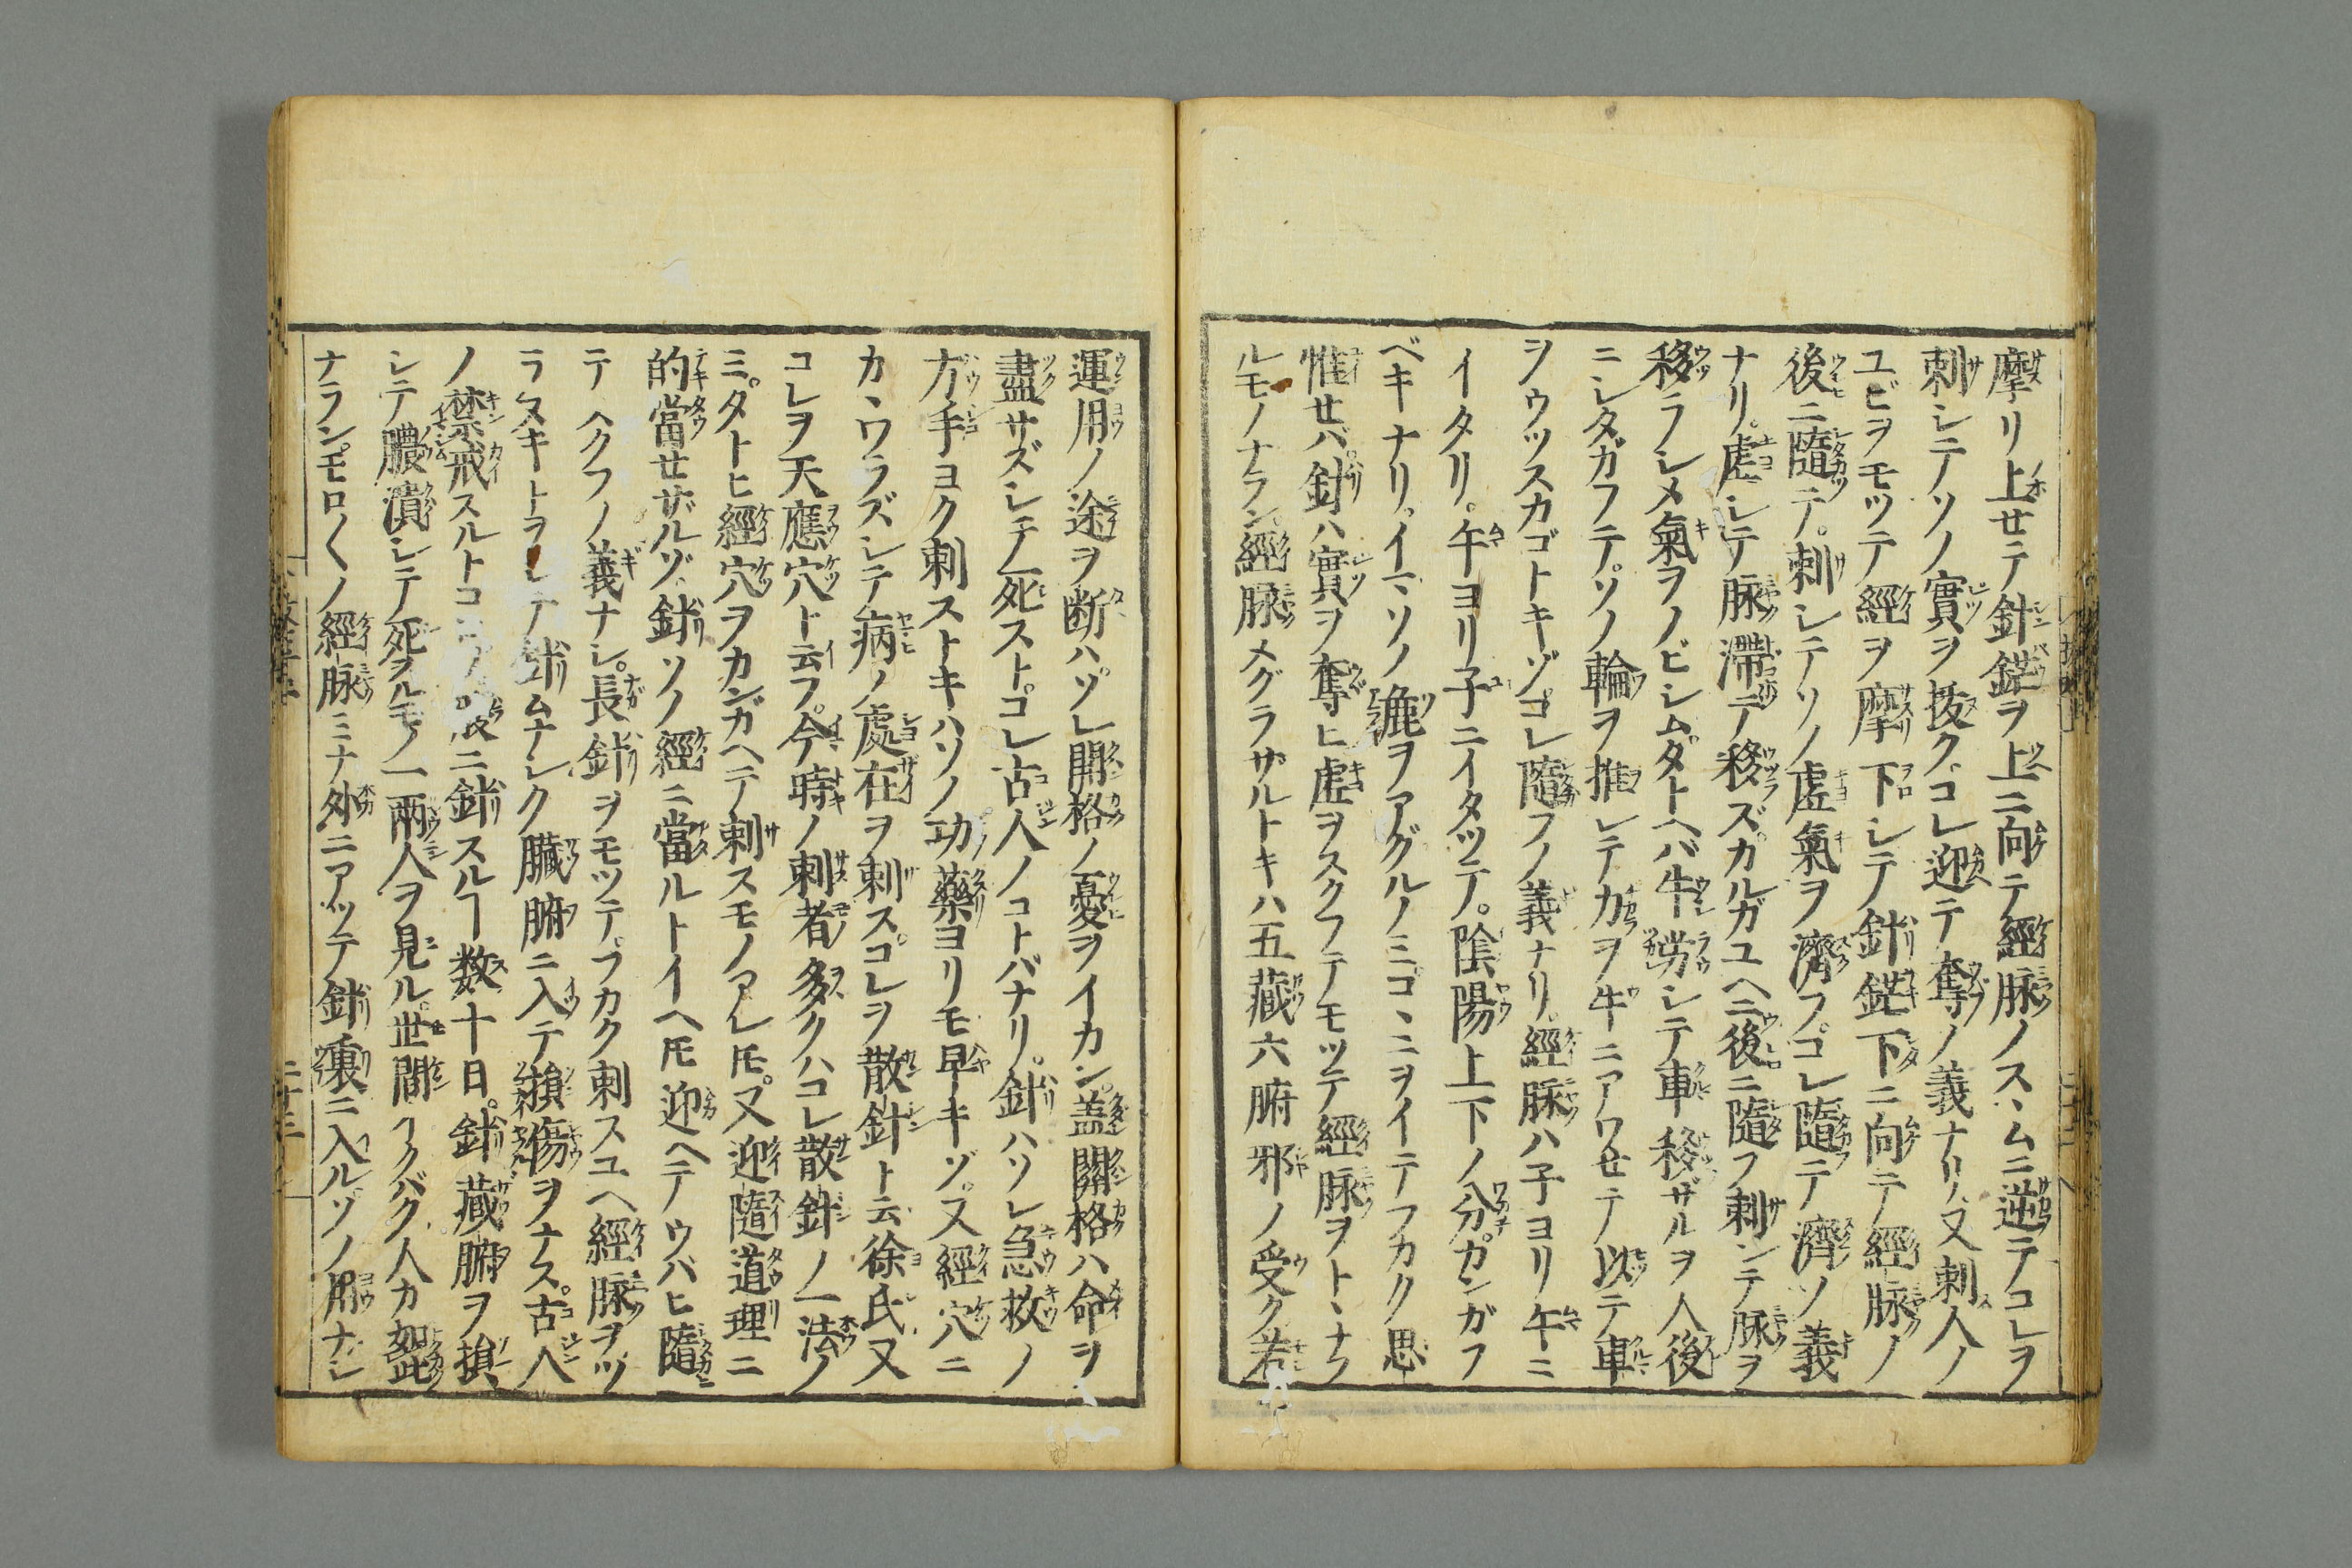 摩リ上セテ針鋩ヲ上ニ向テ經脉ノスヽムニ逆テコレヲ
刺シテソノ實ヲ拔クコレ迎テ奪ノ義ナリ又刺人ノ
ユビヲモツテ經ヲ摩下シテ針鋩下ニ向テ經脉ノ
後ニ隨テ刺シテソノ虚氣ヲ濟フコレ隨テ濟ノ義
ナリ虚シテ脉滯テ移ズカルガユヘニ後ニ隨フ刺シテ脉ヲ
移ラシメ氣ヲノビシムタトヘバ牛労シテ車移ザルヲ人後
ニシタガフテソノ輪ヲ推シテカヲ牛ニアワセテ以テ車
ヲウツスカゴトキゾコレ隨フノ義ナリ經脉ハ子ヨリ午ニ
イタリ午ヨリ子ニイタツテ陰陽上下ノ分カンガフ
ベキナリイマソノ麁ヲアグルノミコヽニヲイテフカク思
惟セバ針ハ實ヲ奪ヒ虚ヲスクフテモツテ經脉ヲトヽナフ
ルモノナラン經脉メグラサルトキハ五藏六腑邪ノ受ク若
運用ノ途ヲ断ハヅレ関格ノ憂ヲイカン蓋關格ハ命ヲ
盡サズシテ死ストコレ古人ノコトバナリ針ハソレ急救ノ
方手ヨク刺ストキハソノ功藥ヨリモ早キゾ又經穴ニ
カヽワラズシテ病ノ處在ヲ刺スコレヲ散針ト云徐氏又
コレヲ天應穴ト云フ今時ノ刺者多クハコレ散針ノ一法ノ
ミタトヒ經穴ヲカンガヘテ刺スモノアレ𪜈又迎隨道理ニ
的當セザルゾ針ソノ經ニ當ルトイヘ𪜈迎ヘテウバヒ隨
テスクフノ義ナシ長針ヲモツテフカク刺スユヘ經脉ヲツ
ラヌキトヲシテ針ムナシク臟腑ニ入テ損傷ヲナス古人
ノ禁戒スルトコ ニ針スルヿ数十日針藏腑ヲ損
シテ膿潰シテ死ヲルモノ一兩人ヲ見ル世間ノソバク人カ如此
ナランモロ〱ノ經脉ミナ外ニアツテ針裏ニ入ルソノ用ナシ
二十三